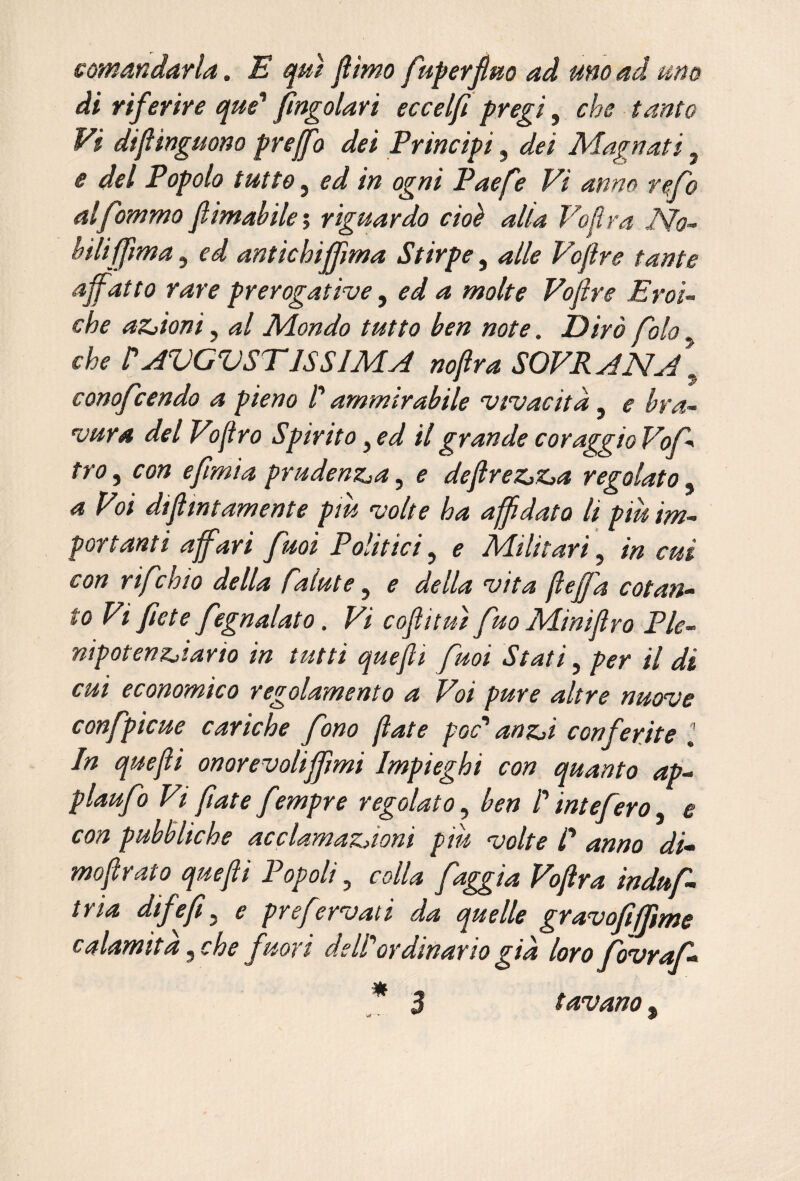 comandarla. E quì ſtimo ſuperfluo ad uno ad uno
di riferire que' ſingolari eccelſi pregi, che tanto
Vi diſtinguono preſſo dei Principi, dei Magnati,
e del Popolo tutto, ed in ogni Paeſe Vi anno reſo
al ſommo ſtimabile; riguardo cioè alla Voſtra No-
biliſſima, ed antichiſſima Stirpe, alle Voſtre tante
affatto rare prerogative, ed a molte Voſtre Eroi-
che azioni, al Mondo tutto ben note. Dirò ſolo,
che l'AVGVSTISSIMA noſtra SOVRANA,
conoſcendo a pieno l' ammirabile vivacità, e bra-
vura del Voſtro Spirito, ed il grande coraggio Voſ-
tro, con eſimia prudenza, e deſtrezza regolato,
a Voi diſtintamente più volte ha affidato li più im-
portanti affari ſuoi Politici, e Militari, in cui
con riſchio della ſalute, e della vita ſteſſa cotan-
to Vi ſiete ſegnalato. Vi coſtituì ſuo Miniſtro Ple-
nipotenziario in tutti queſti ſuoi Stati, per il di
cui economico regolamento a Voi pure altre nuove
conſpicue cariche ſono ſtate poc' anzi conferite.
In queſti onorevoliſſimi Impieghi con quanto ap-
plauſo Vi ſiate ſempre regolato, ben l' inteſero, e
con pubbliche acclamazioni più volte l' anno di-
moſtrato queſti Popoli, colla ſaggia Voſtra induſ-
tria difeſi, e preſervati da quelle gravoſiſſime
calamità, che fuori dell'ordinario già loro ſovraſ-
* 3 tavano,